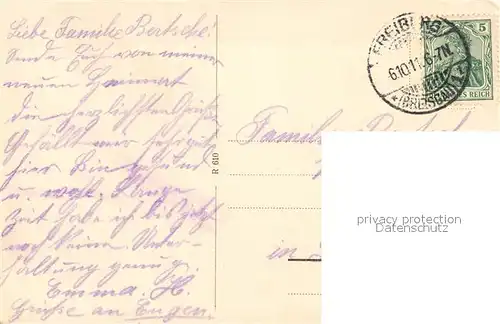 Liebe Familie Bertsche!
Sende Euch von meiner
neuen Heimat
die herzlichsten Grüße
Gefällt mir sehr gut
hier Bin gesund
u. wohl. Lange
Zeit habe ich bis jetzt
noch keine Unter-
haltung genug.
Emma. H.
Grüße an Eugen.
R 610
FREIBURG
6.10.11. 6-7N.
* (BREISGAU)
5
REICH
Familie
in
privacy protection
Datenschutz